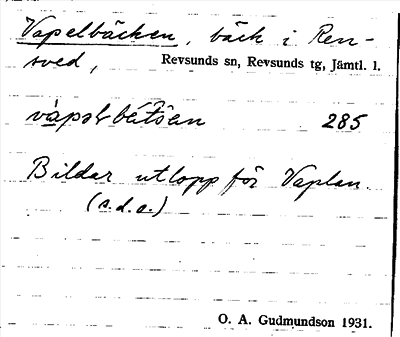 Vapelbäcken, bäck i Ren-
sved, Revsunds sn, Revsunds tg, Jämtl. l.
285
Bildar utlopp för Vaplan.
(s.d.o.)
O. A. Gudmundson 1931.